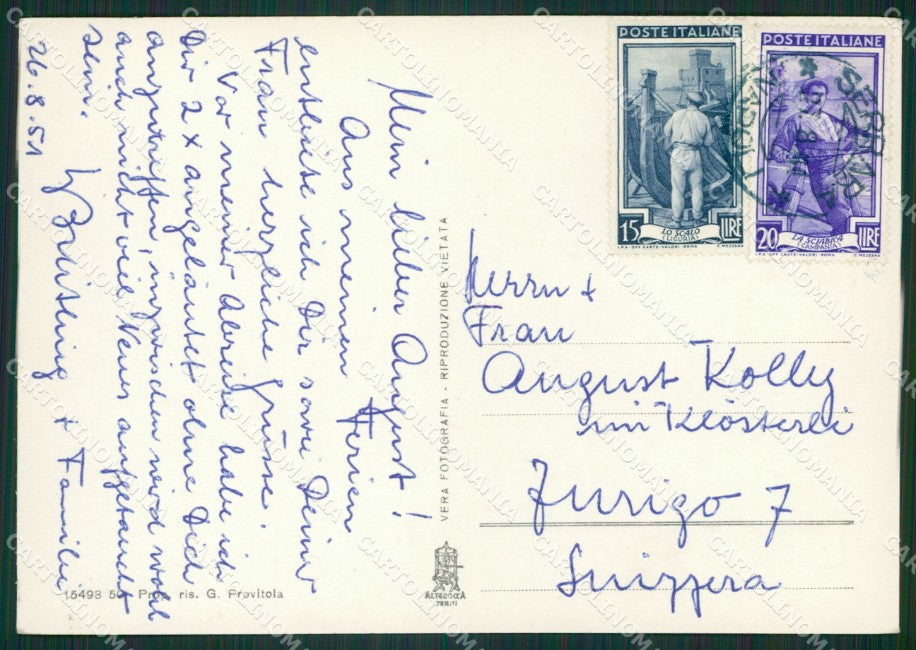 Mein lieber August!
Aus meinen Ferien
entbiete ich Dir sowie Deiner
Frau herzliche Grüsse.
Vor meiner Abreise habe ich
Dir 2 x angeläutet ohne Dich
anzutreffen, inzwischen wird wohl
auch nicht viel Neues aufgetaucht
sein.
+ Familie
26.8.51
15493 Prop. ris. G. Provitola
VERA FOTOGRAFIA - RIPRODUZIONE VIETATA
ALTEROCCA
TERNI
POSTE ITALIANE
15 LO SCALO LIRE
(LIGURIA)
I.P.S.-OFF. CARTE-VALORI-ROMA C. MEZZANA
POSTE ITALIANE
20 LA SCIABICA LIRE
(CAMPANIA)
I.P.S.-OFF. CARTE-VALORI-ROMA C. MEZZANA
Herrn +
Frau
August Kolly
im Klösterli
Zurigo 7
Suizzera
CARTOLINOMANIA